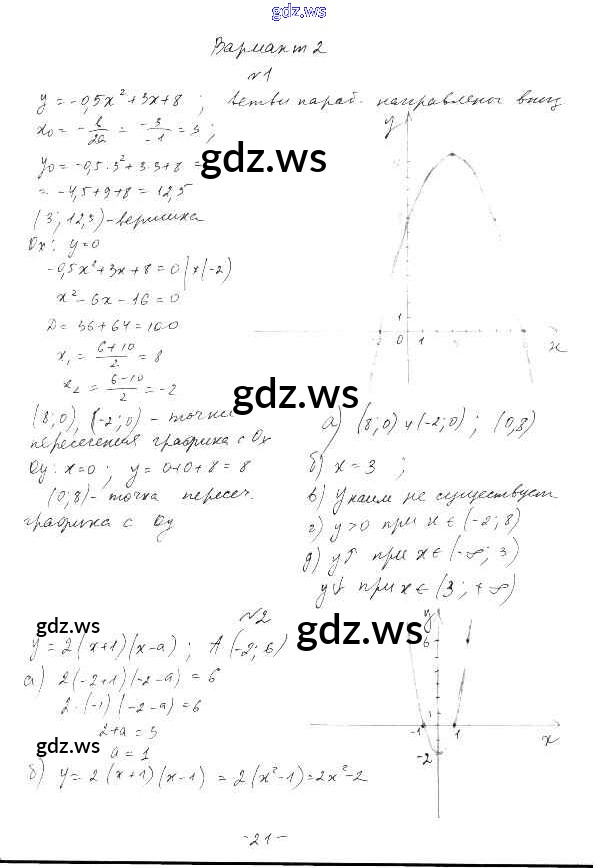 gdz.ws
Вариант 2
№1
y = -0,5x² + 3x + 8 ; ветви параб. направлены вниз
x₀ = -b/2a = -3/-1 = 3 ;
y₀ = -0,5·3² + 3·3 + 8 =
= -4,5 + 9 + 8 = 12,5
gdz.ws
(3; 12,5) - вершина
Ox: y = 0
-0,5x² + 3x + 8 = 0 | ×(-2)
x² - 6x - 16 = 0
D = 36 + 64 = 100
x₁ = (6+10)/2 = 8
x₂ = (6-10)/2 = -2
y
1
-2 0 1
x
gdz.ws
(8; 0), (-2; 0) - точки
пересечения графика с Ox
Oy: x = 0 ; y = 0+0+8 = 8
(0; 8) - точка пересеч.
графика с Oy
а) (8; 0) и (-2; 0) ; (0; 8)
б) x = 3 ;
в) y наим не существует
г) y > 0 при x ∈ (-2; 8)
д) y↑ при x ∈ (-∞; 3)
y↓ при x ∈ (3; +∞)
№2
gdz.ws
gdz.ws
y = 2(x+1)(x-a) ; A(-2; 6)
а) 2(-2+1)(-2-a) = 6
2·(-1)(-2-a) = 6
2+a = 3
gdz.ws
a = 1
б) y = 2(x+1)(x-1) = 2(x²-1) = 2x²-2
y
6
1
-1 1
x
-2
-21-